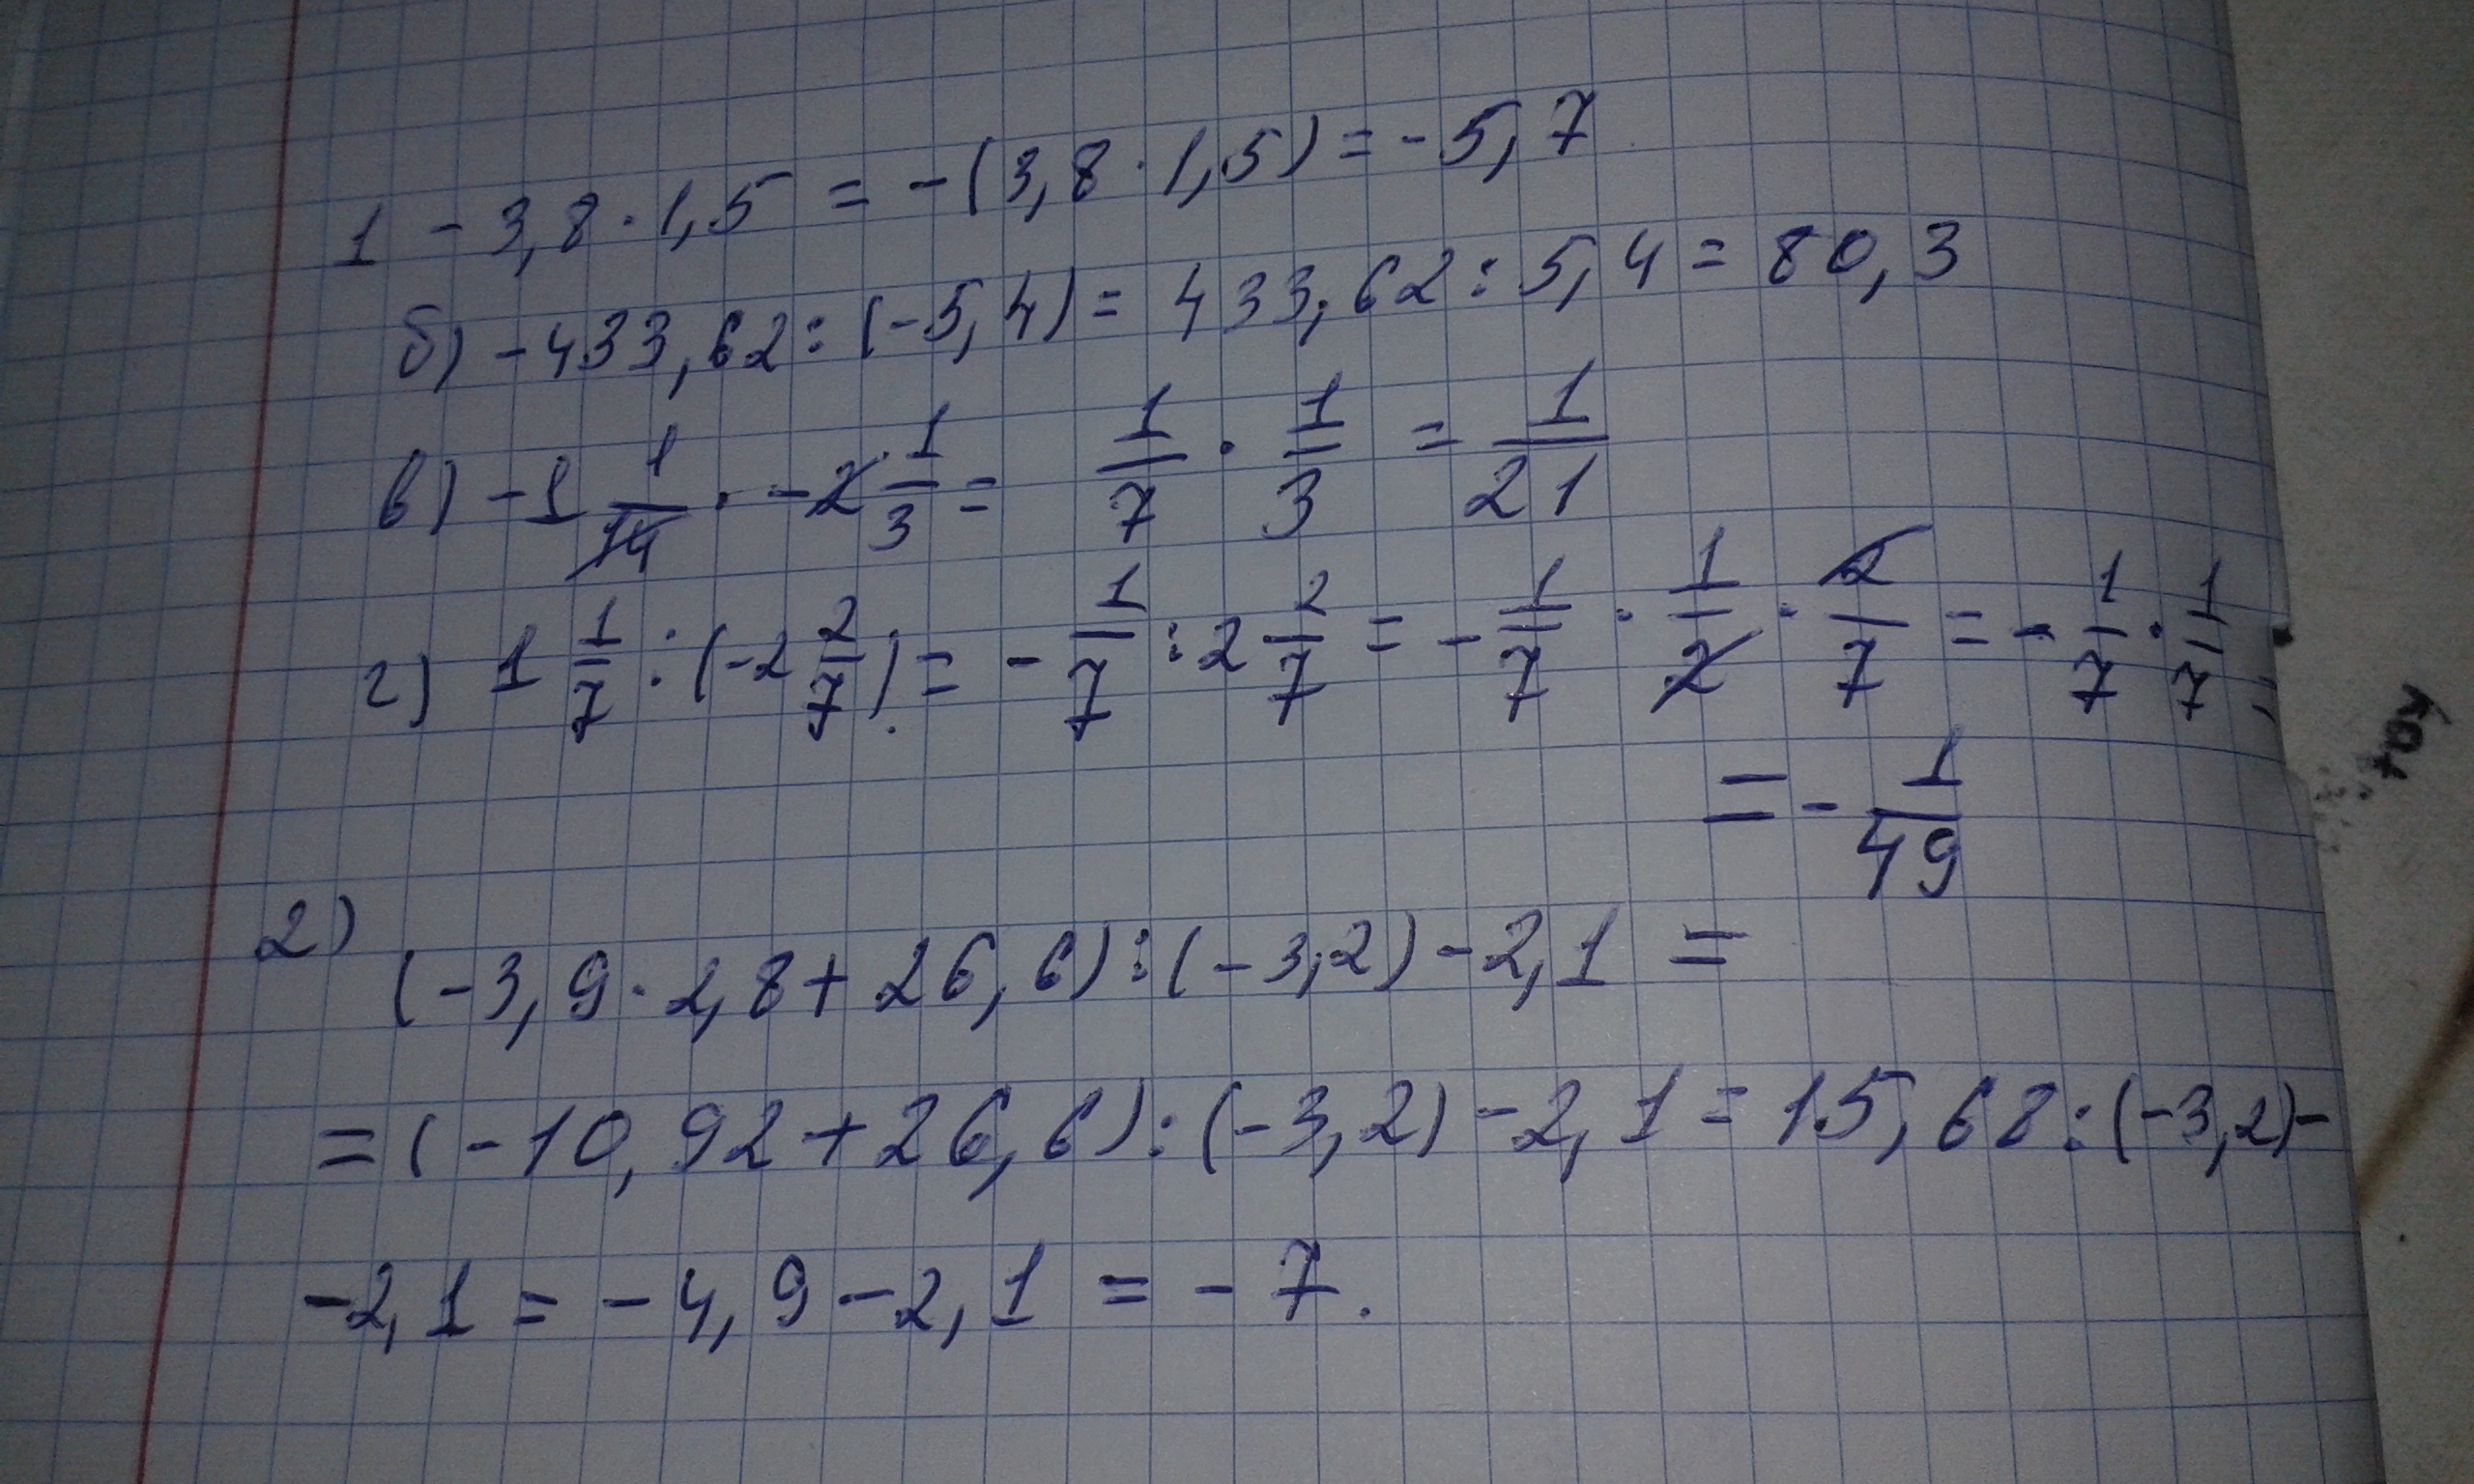 1 - 3,8 · 1,5 = -(3,8 · 1,5) = -5,7
б) -433,62 : (-5,4) = 433,62 : 5,4 = 80,3
в) -1 1/14 · -2 1/3 = 1/7 · 1/3 = 1/21
г) 1 1/7 : (-2 2/7) = - 1/7 : 2 2/7 = - 1/7 · 1/2 · 2/7 = - 1/7 · 1/7 =
= - 1/49
2) (-3,9 · 2,8 + 26,6) : (-3,2) - 2,1 =
= (-10,92 + 26,6) : (-3,2) - 2,1 = 15,68 : (-3,2) -
- 2,1 = -4,9 - 2,1 = -7.